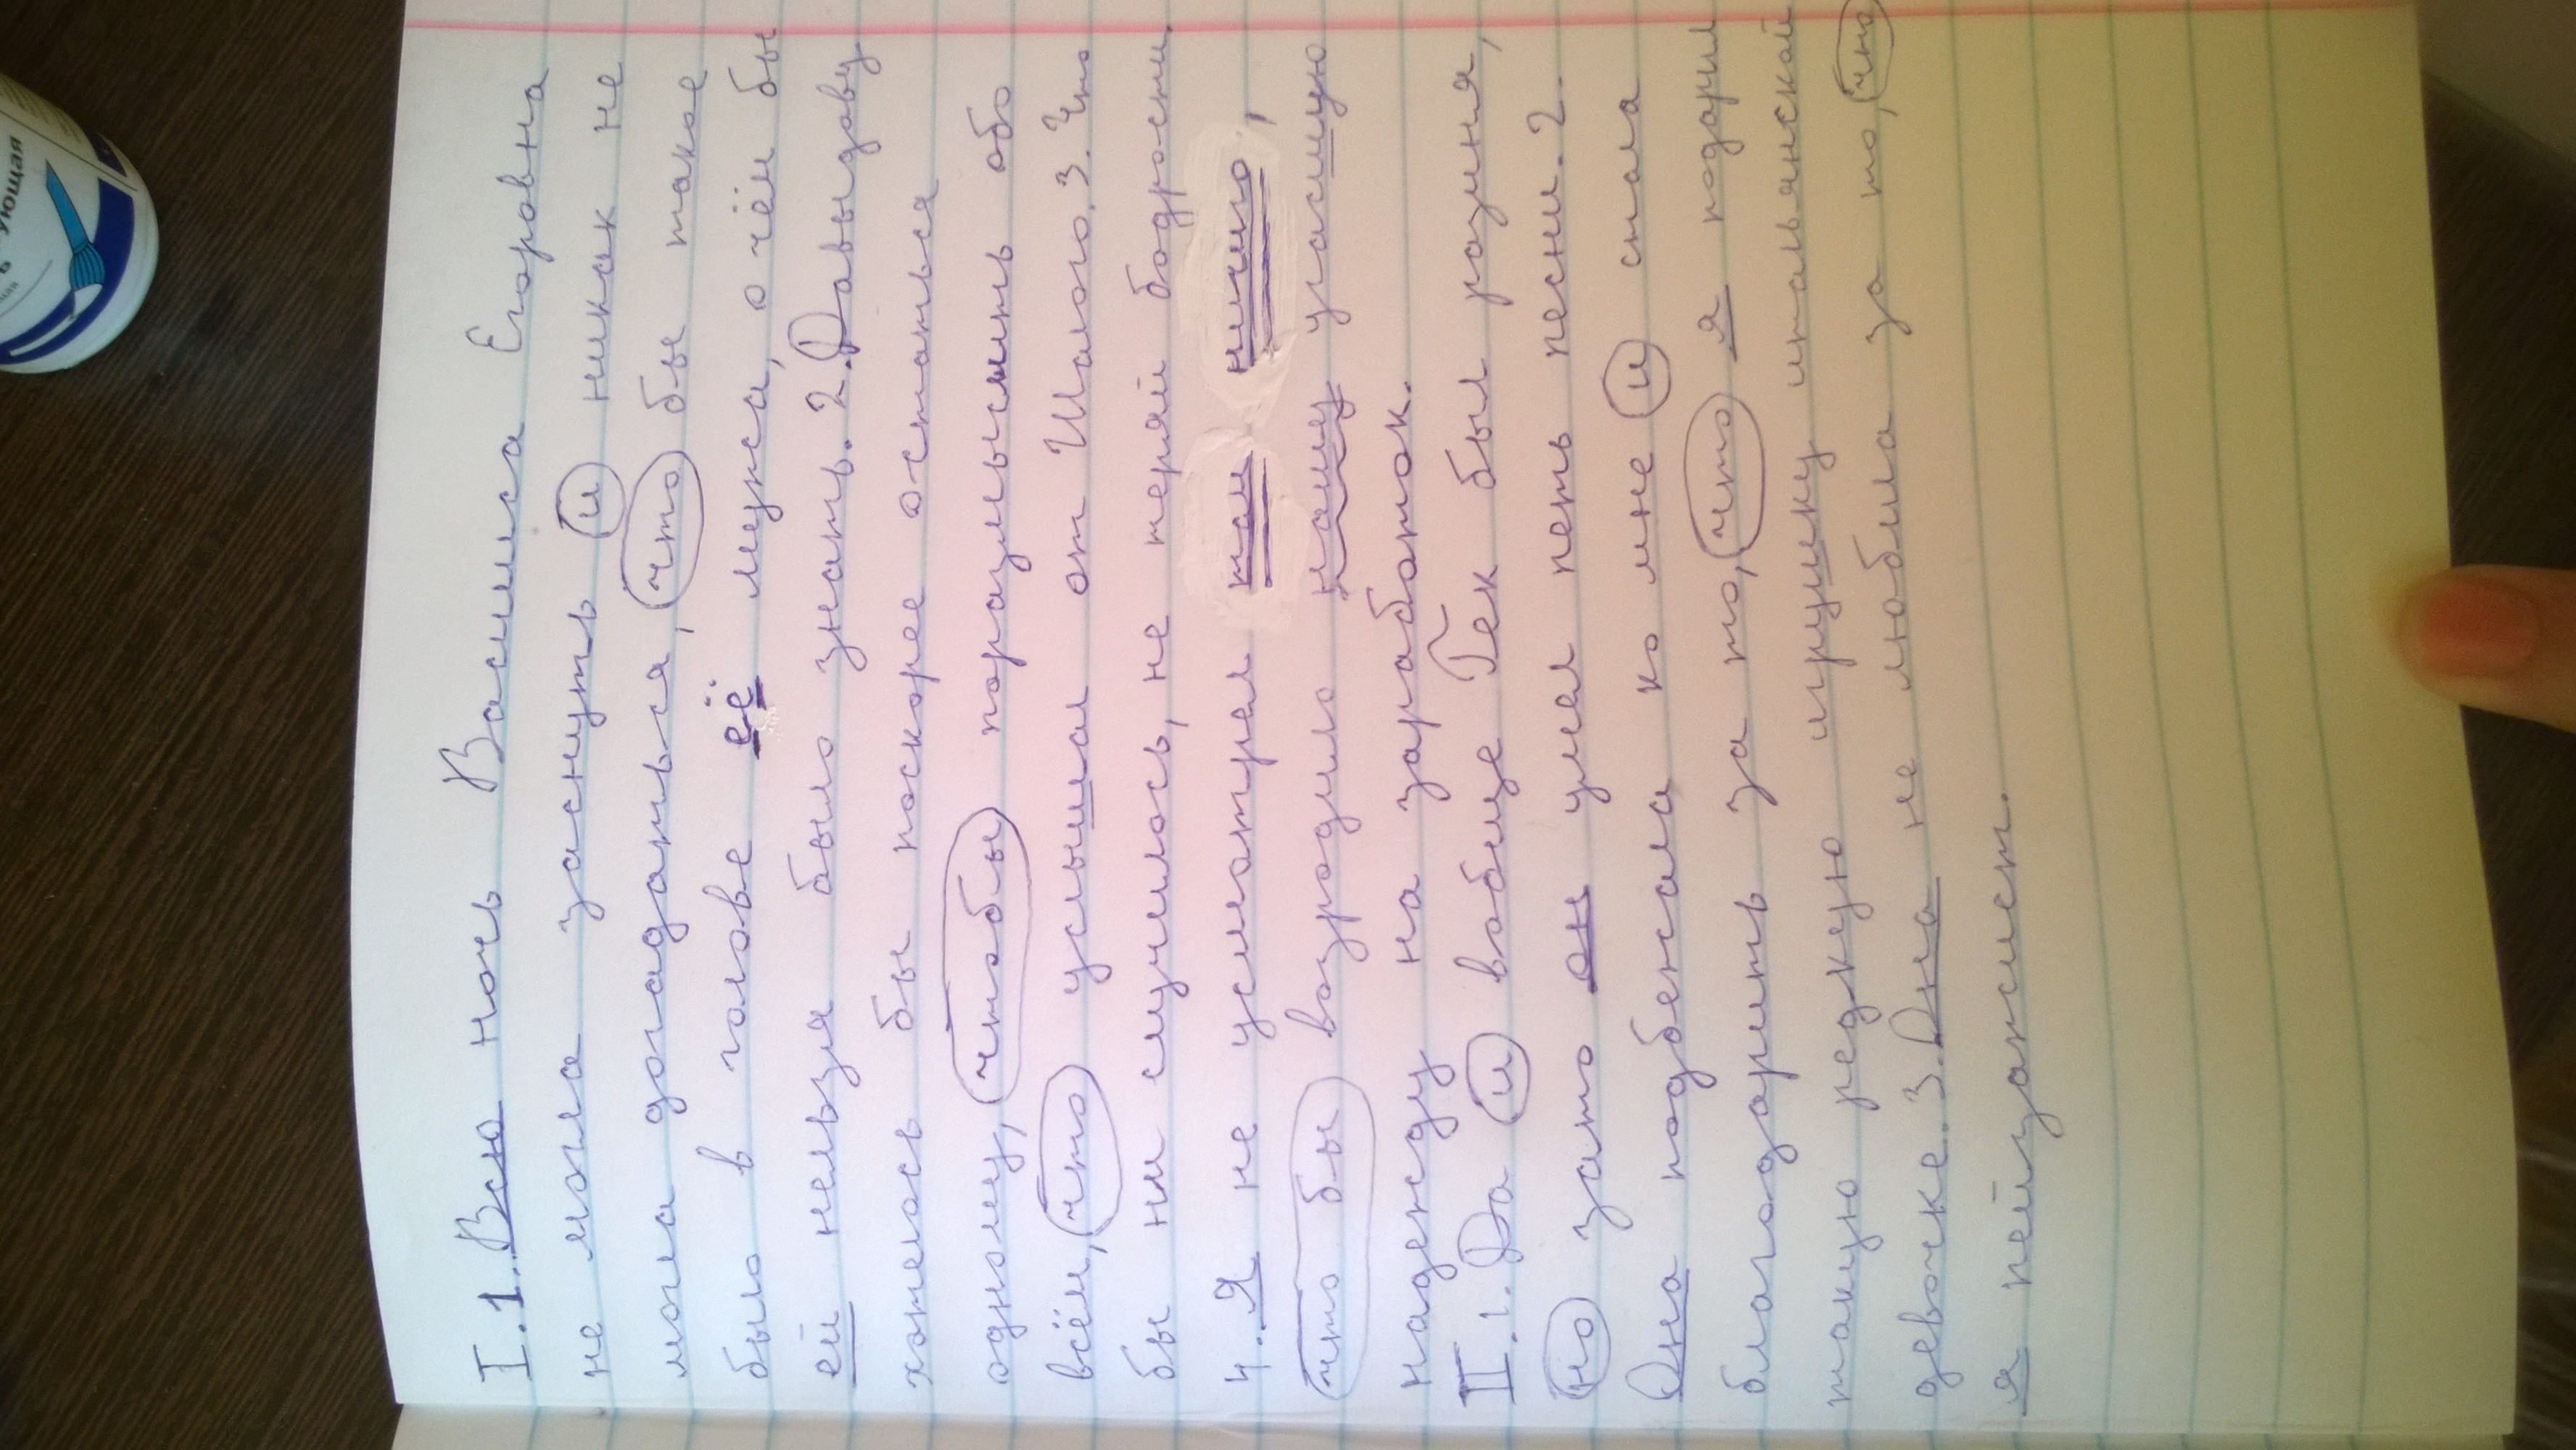 I. 1. Всю ночь Василиса Егоровна
не могла заснуть и никак не
могла догадаться, что бы такое
было в голове её мужа, о чём бы
ей нельзя было знать. 2. Давыдову
хотелось бы поскорее остаться
одному, чтобы поразмыслить обо
всём, что услышал от Шалого. 3. Что
бы ни случилось, не теряй бодрости.
4. Я не усмотрел там ничего,
что бы возродило нашу угасшую
надежду на заработок.
II. 1. Да и вообще Гек был разиня,
но зато он умел петь песни. 2.
Она подбежала ко мне и стала
благодарить за то, что я подарил
такую редкую игрушку итальянской
девочке. 3. Она не любила за то, что
я пейзажист.
ующая